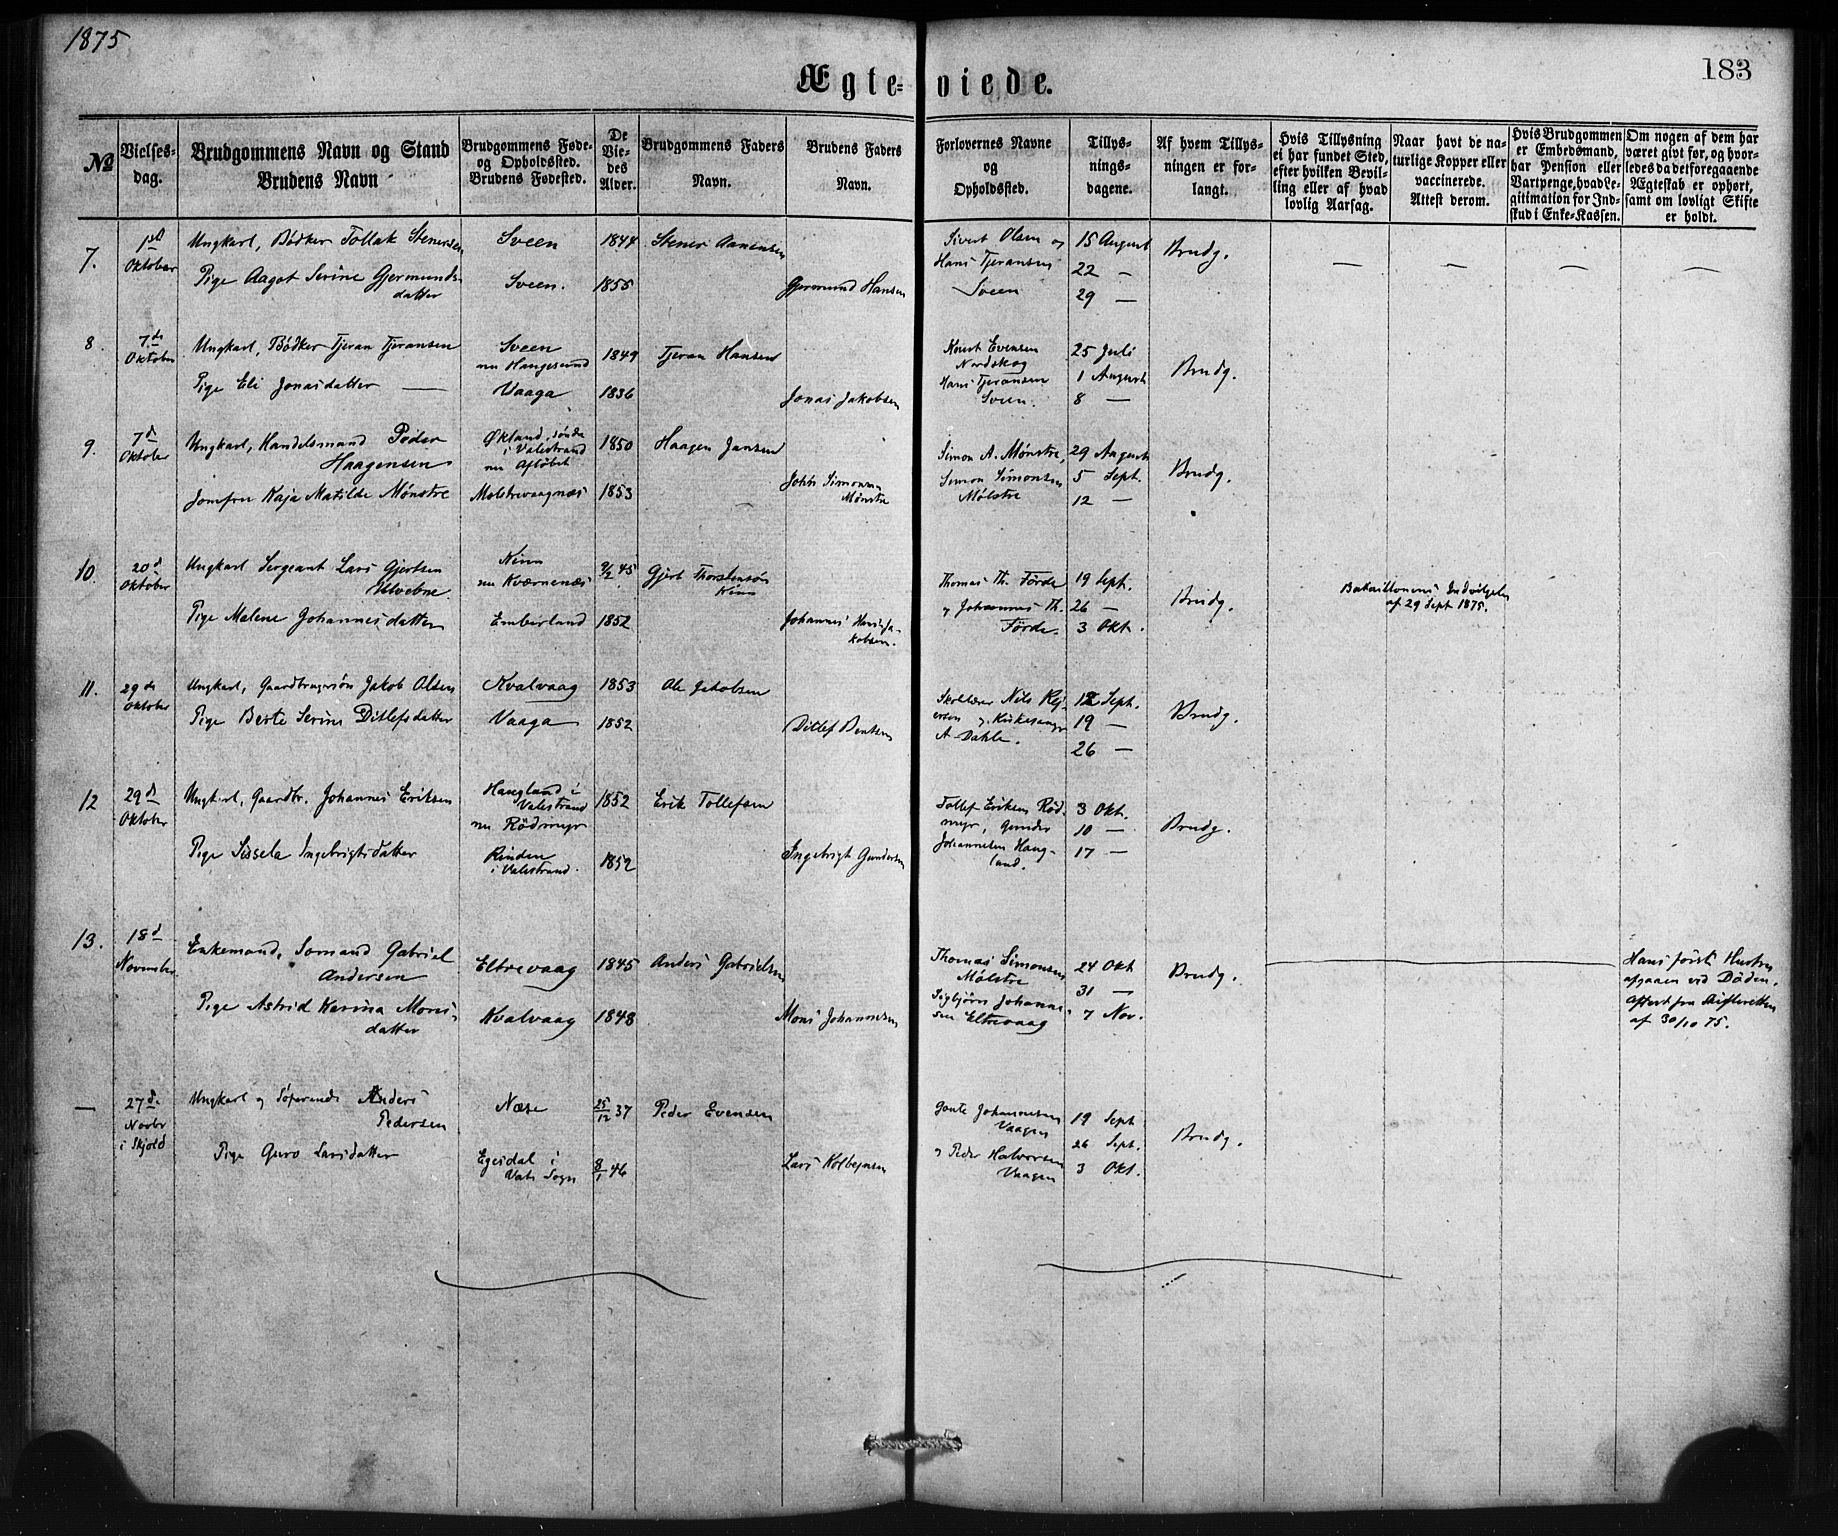 1875
183
Ægte-viede.
No
Vielses-dag.
Brudgommens Navn og Stand
Brudens Navn
Brudgommens Føde- og Opholdssted.
Brudens Fødested.
De Viedes Alder.
Brudgommens Faders Navn.
Brudens Faders Navn.
Forlovernes Navne og Opholdssted.
Tillysnings-dagene.
Af hvem Tillysningen er forlangt.
Hvis Tillysning ei har fundet Sted, efter hvilken Bevilling eller af hvad lovlig Aarsag.
Naar havt de naturlige Kopper eller vaccinerede. Attest derom.
Hvis Brudgommen er Embedsmand, har Pension eller Vartpenge, hvad Legitimation for Indskud i Enke-Kassen.
Om nogen af dem har været givt før, og hvorledes da det foregaaende Ægteskab er ophørt, samt om lovligt Skifte er holdt.
7.
1ste Oktober
Ungkarl, Bødker Tollak Stenersen
Sveen
1844
Stener Aanensen
Sivert Olsen og
Hans Tjeransen
Sveen
15 August
22 —
29 —
Brudg.
— — — —
Pige Aagot Serine Gjermunds-
datter
Sveen.
1855
Gjermund Hansen
8
7de Oktober
Ungkarl, Bødker Tjeran Tjeransen
Sveen
nu Haugesund
1849
Tjeran Hansen
Knut Evensen
Nordskog
Hans Tjeransen
Sveen.
25 Juli
1 August
8 —
Brudg.
Pige Eli Jonasdatter —
Vaaga
1836
Jonas Jakobsen
9.
7d Oktober
Ungkarl, Handelsmand Peder
Haagensen
Økland, søndre
i Valestrand
nu Afløbet
1850
Haagen Jansen
Simon A. Mønstre,
Simon Simonsen
Mølstre
29 August
5 Sept.
12 —
Brudg.
Jomfru Kaja Matilde Mønstre
Molstrevaagnæs
1853
John Simonsen
Mønstre
10.
20d Oktober
Ungkarl Sergeant Lars Gjertsen
Kinn
nu Kværnenæs
9/2 45
Gjert Thorstensøn
Kinn
Thomas Th. Förde
og Johannes Th.
Förde.
19 Sept.
26 —
3 Okt.
Brudg.
Bataillonens Indvilgelse
af 29 Sept 1875.
Pige Malene Johannesdatter
Emberland
1852
Johannes Hans Ja-
kobsen.
11.
29de Oktober
Ungkarl, Gaardbrugersøn Jakob Olsen
Kvalvaag
1853
Ole Jakobsen
Skolelærer Nils Rej-
ersen og Kirkesanger
A Dahle.
12 Sept.
19 —
26 —
Brudg.
Pige Berte Serine Ditlefsdatter
Vaaga
1852
Ditlef Bentsen
12
29d Oktober
Ungkarl, Gaardbr. Johannes Eriksen
Haugland i
Valestrand
nu Rödmyr
1852
Erik Tollefsen
Tollef Eriksen Röd-
myr, Gunder
Johannesen Haug-
land.
3 Okt.
10 —
17 —
Brudg.
Pige Sissela Ingebrigtsdatter
Rinden
i Valestrand.
1852
Ingebrigt Gundersen
13.
18d November
Enkemand, Sømand Gabriel
Andersen
Eltrevaag
1845
Anders Gabrielsen
Thomas Simonsen
Mølstre
Sigbjørn Johanne-
sen Eltrevaag
24 Okt
31 —
7 Nov.
Brudg.
Hans första Hustru
afgaaen ved Døden.
Attest fra Skifteretten
af 30/10 75.
Pige Astrid Karina Mons-
datter
Kvalvaag
1848
Mons Johannesen
—
27de Novbr i Skjold
Ungkarl og Søfarende Anders
Pedersen
Næse
25/12 37
Peder Evensen
Gaute Johannesen
Vaagen
og Peder Halvorsen
Vaagen
19 Sept
26 Sept.
3 Okt.
Brudg.
Pige Guro Larsdatter
Egesdal i
Vats Sogn
8/1 46
Lars Kolbejnsen